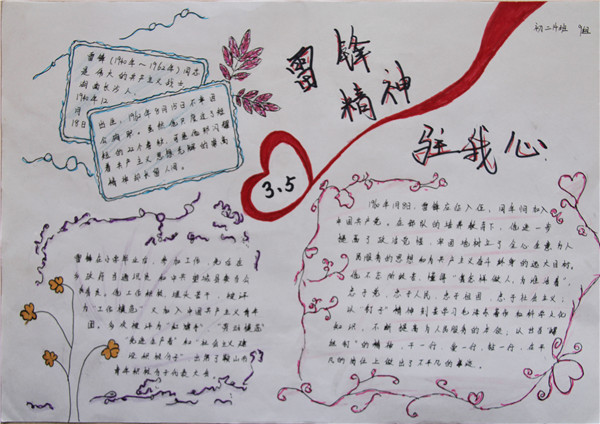 初二14班
雷锋
精神
驻我心
3.5
雷锋(1940年~1962年)同志
是伟大的共产主义战士
湖南长沙人,
1940年12
月
18日
出生,1962年8月15日不幸因
公殉职。虽然他只度过了短
短的22个春秋,可是他却闪耀
着共产主义思想光辉的崇高
精神却永留人间。
雷锋在小学毕业后,参加工作,先后在
乡政府当通讯员
中共望城县委当公
务员。他工作积极,埋头苦干,被评
为"工作模范",
加入中国共产主义青年
团,多次被评为"红旗手"、"劳动模范"
"先进生产者"和"社会主义建
设积极分子",
出席了鞍山市
青年积极分子代表大会
1960年1月8日,雷锋应征入伍,同年11月加入
中国共产党。在部队的培养教育下,他进一步
提高了政治觉悟,牢固地树立了全心全意为人
民服务的思想和为共产主义奋斗终身的远大目标。
他不忘阶级苦,懂得"怎样做人,为谁活着",
忠于党,忠于人民,忠于祖国,忠于社会主义;
以"钉子"精神刻苦学习毛泽东著作和科学文化
知识,不断提高为人民服务的本领;以甘当"螺
丝钉"的精神,干一行,爱一行,钻一行,在平
凡的岗位上做出了不平凡的事迹。